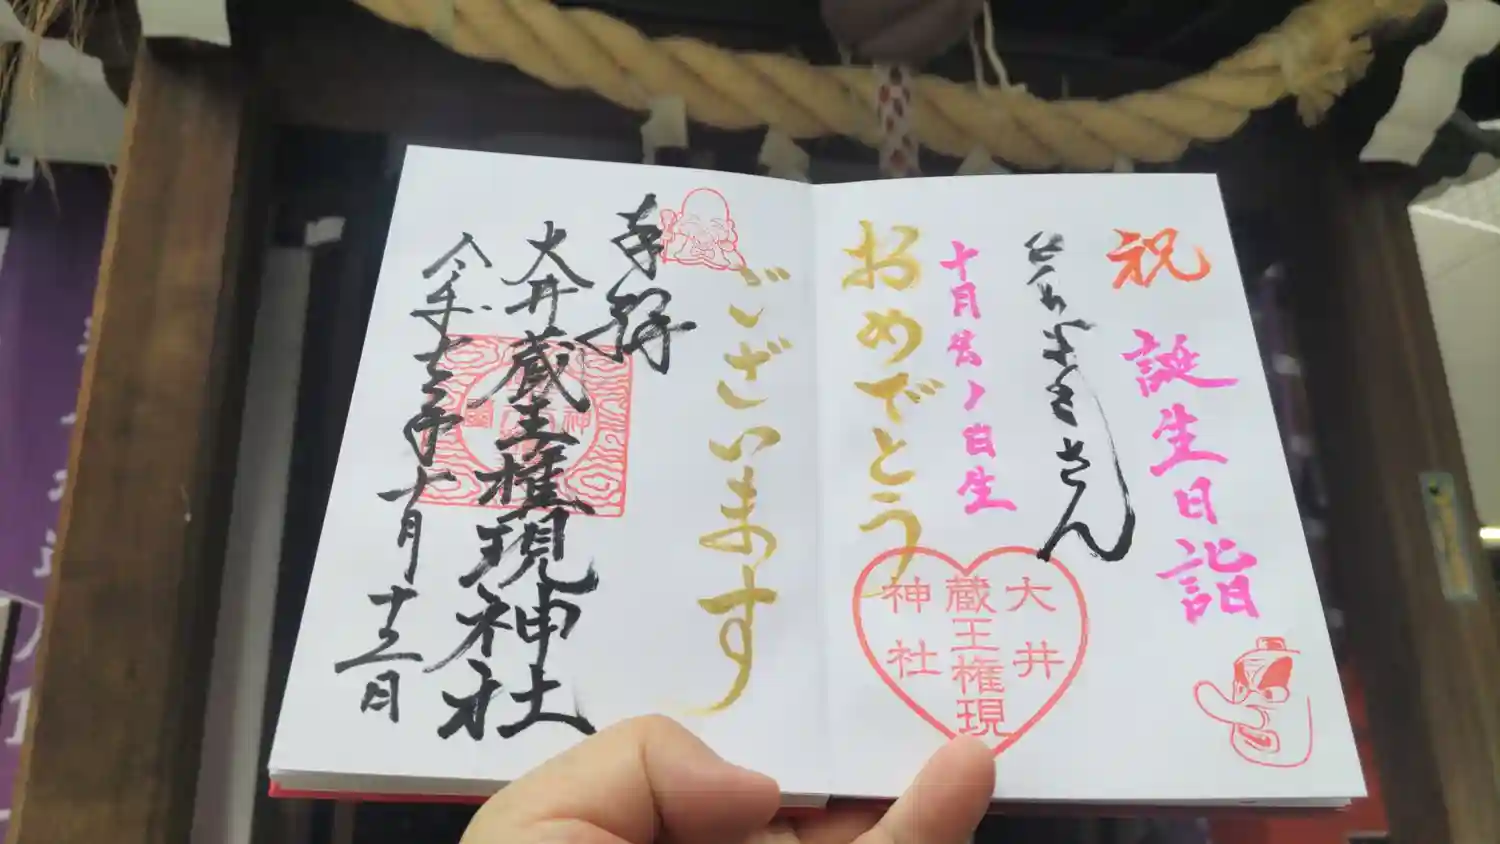 祝
誕生日詣
さん
十月
日生
おめでとう
ございます
大井
蔵王権現
神社
奉拝
大井蔵王権現神社
令和
年十月十三日
神